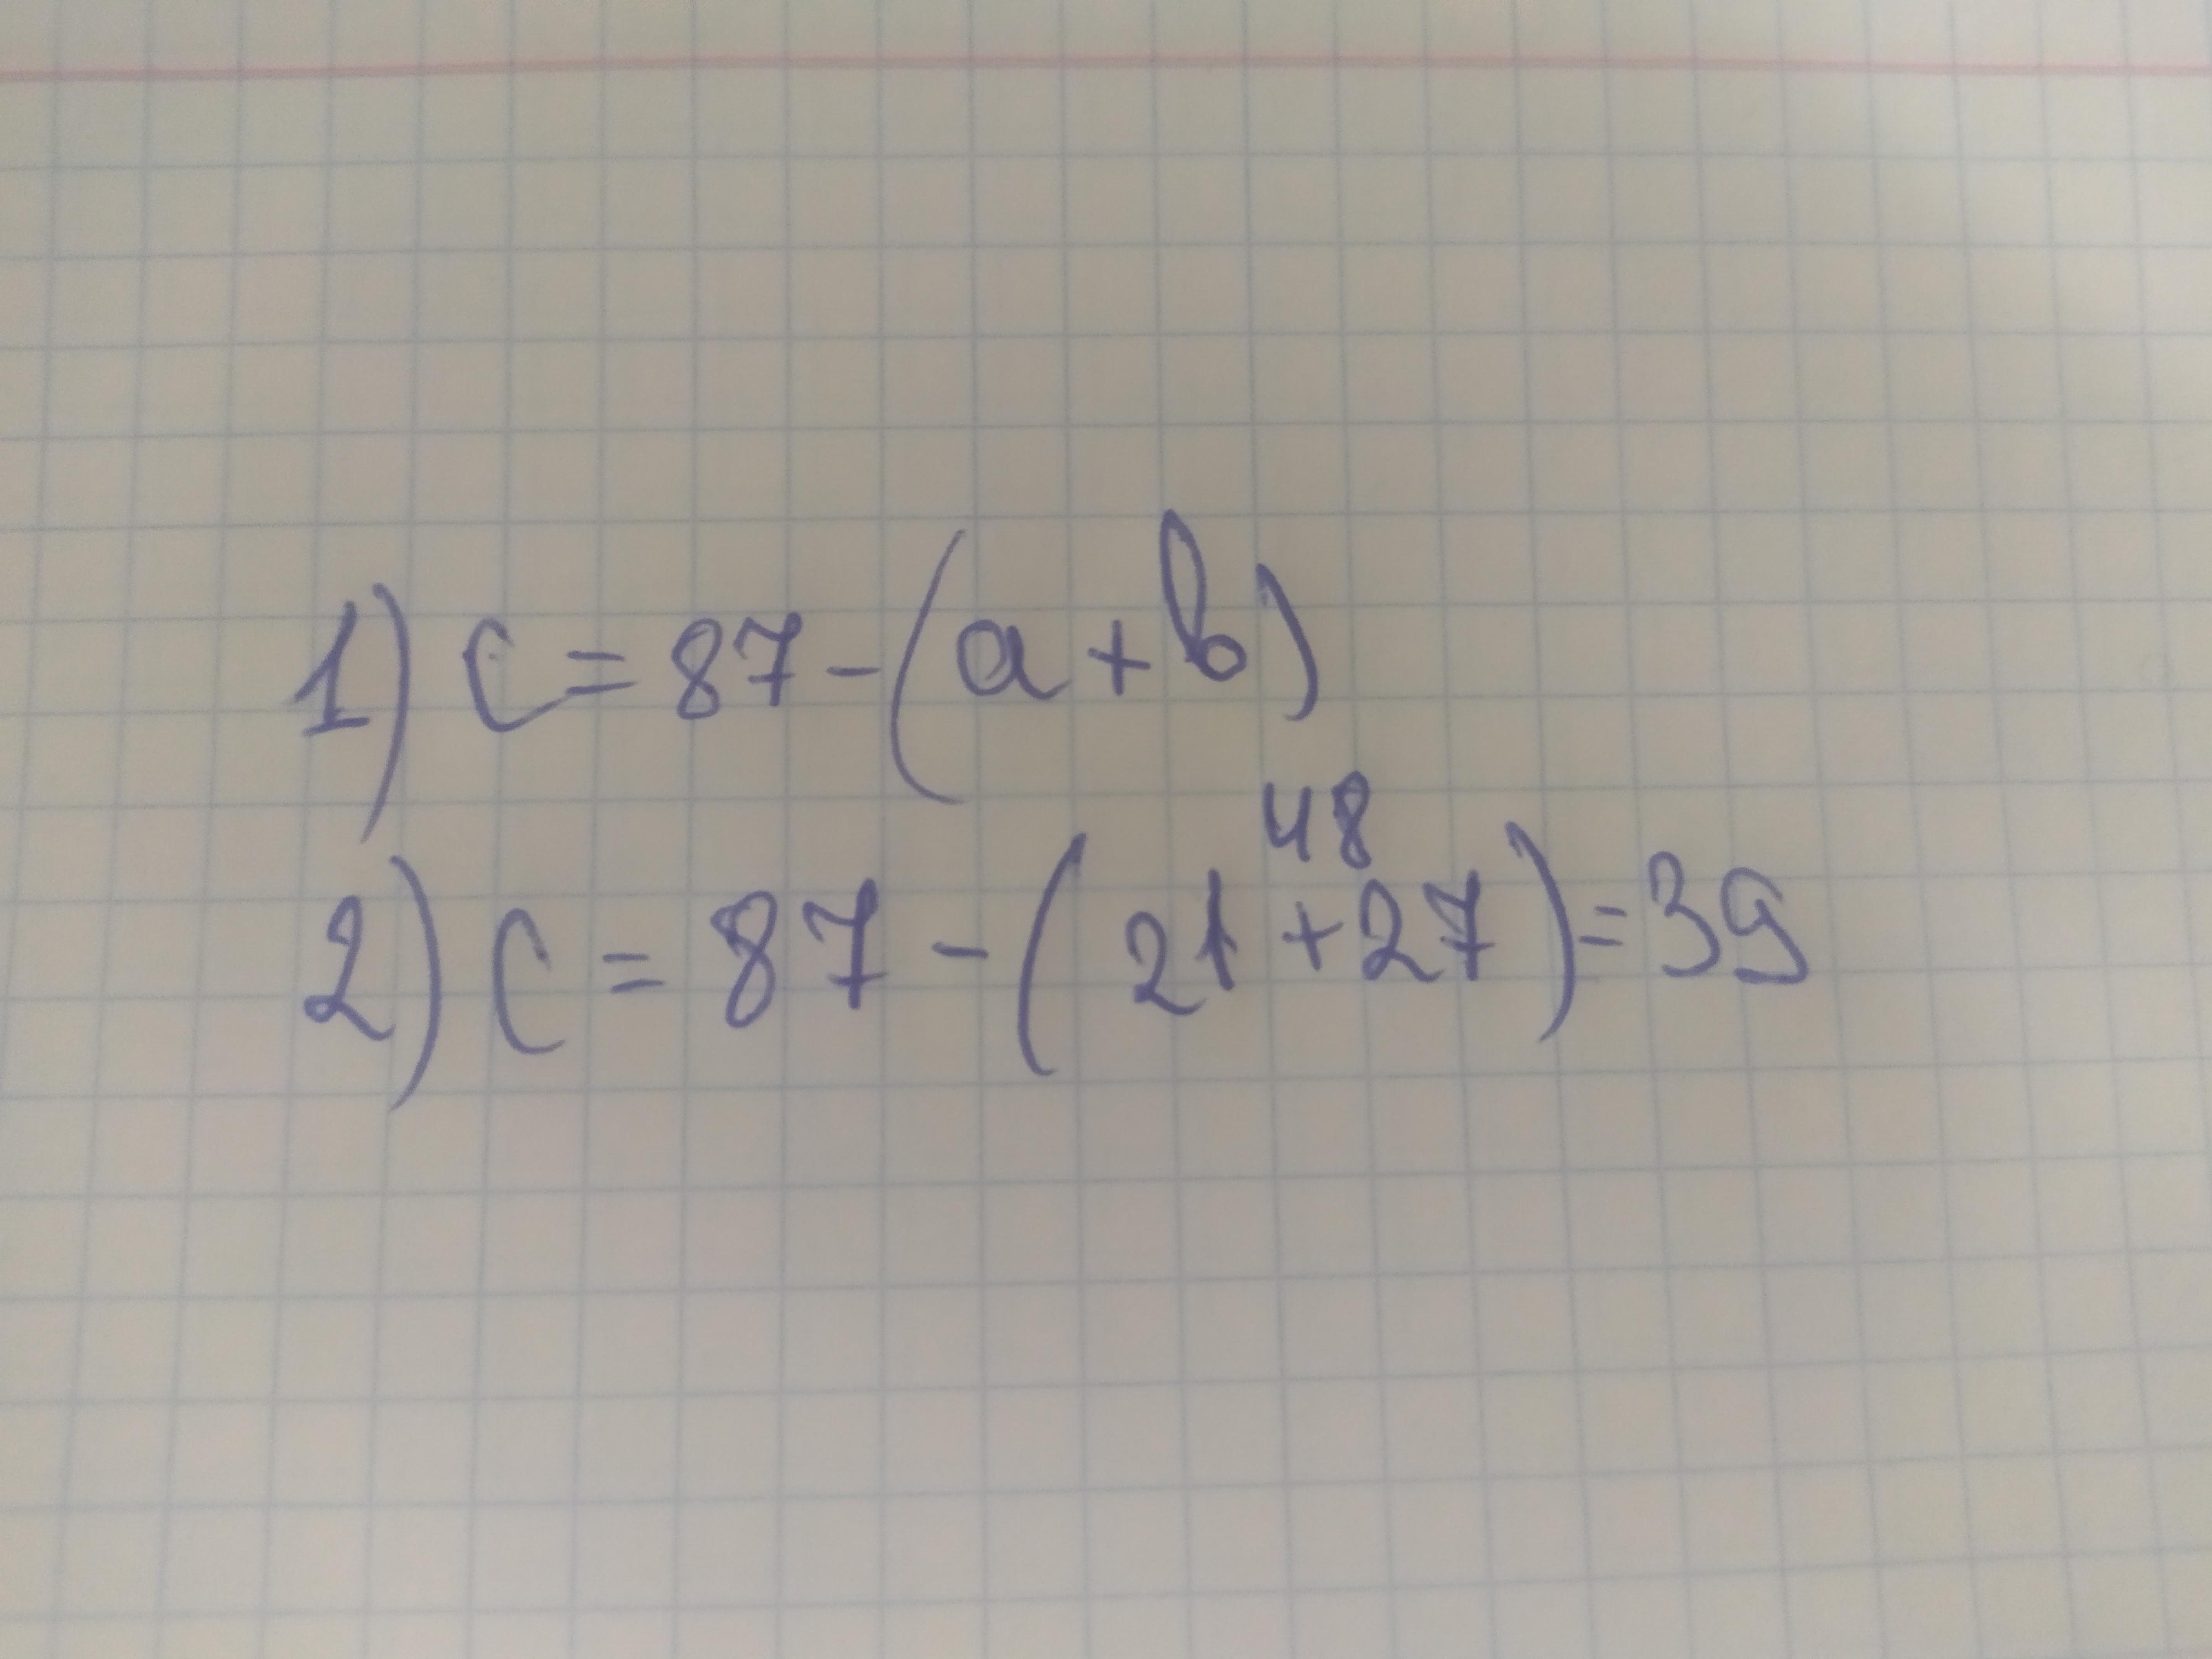 1) c = 87 - (a + b)
48
2) c = 87 - (21 + 27) = 39